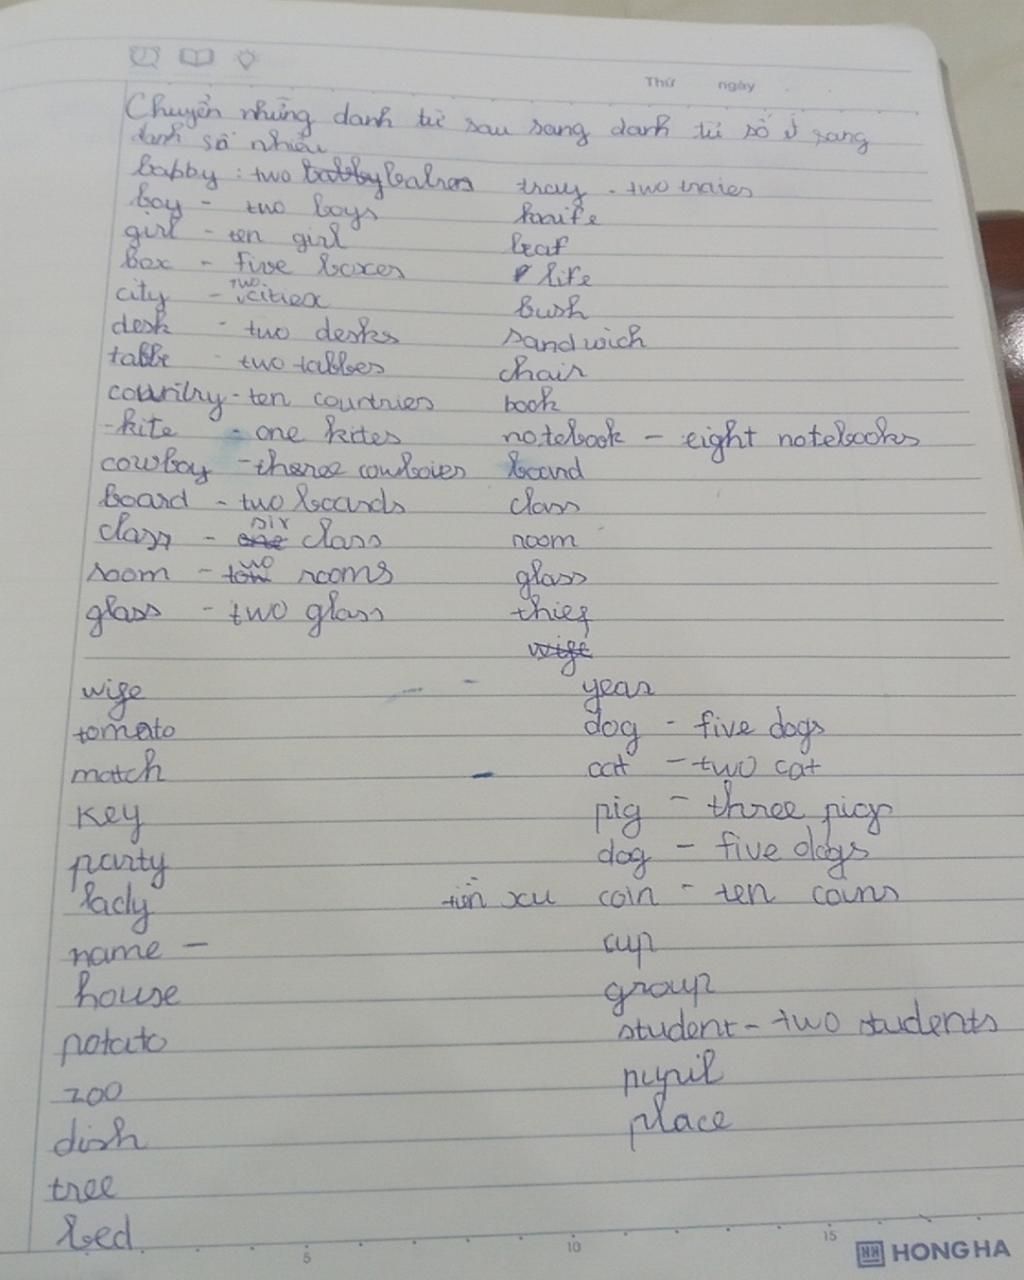 Thứ ngày
Chuyển những danh từ sau sang danh từ số ít sang
danh số nhiều
babby : two tray - two traies
boy - two boys knife
girl - ten girl leaf
box - five boxes life
city - two cities bush
desk - two desks sandwich
table - two tables chair
country - ten countries book
- kite - one kites notebook - eight notebooks
cowboy - three cowboies board
board - two boards class
class - six class room
room - two rooms glass
glass - two glass thief
wife
wife year
tomato dog - five dogs
match cat - two cat
key pig - three pigs
party dog - five dogs
lady tiền xu coin - ten coins
name - cup
house group
potato student - two students
zoo pupil
dish place
tree
bed
5 10 15
HH HONG HA